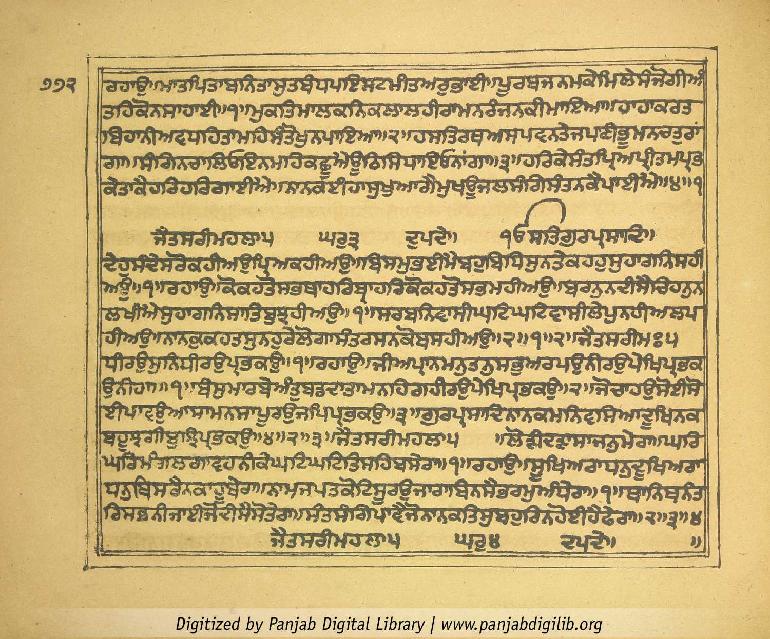 ੭੭੨
ਰਹਾਉ॥ਮਾਤਪਿਤਾਬਨਿਤਾਸੁਤਬੰਧਪਇਸਟਮੀਤਅਰੁਭਾਈ॥ਪੂਰਬਜਨਮਕੇਮਿਲੇਸੰਜੋਗੀਅੰ
ਤਹਿਕੋਨਸਾਹਾਈ॥੧॥ਮੁਕਤਿਮਾਲਕਨਿਕਲਾਲਹੀਰਾਮਨਰੰਜਨਕੀਮਾਇਆ॥ਹਾਹਾਕਰਤ
ਬਿਹਾਨੀਅਵਧਹਿਤਾਮਹਿਸੰਤੋਖੁਨਪਾਇਆ॥੨॥ਹਸਤਿਰਥਅਸਪਵਨਤੇਜਪਣੀਭੂਮਨਚਤੁਰਾਂ
ਗਾ॥ਸੰਗਿਨਚਾਲਿਓਇਨਮਹਿਕਛੂਐਊਠਿਸਿਧਾਇਓਨਾਂਗਾ॥੩॥ਹਰਿਕੇਸੰਤਪ੍ਰਿਅਪ੍ਰੀਤਮਪ੍ਰਭ
ਕੇਤਾਕੈਹਰਿਹਰਿਗਾਈਐ॥ਨਾਨਕਈਹਾਸੁਖੁਆਗੈਮੁਖਊਜਲਸੰਗਿਸੰਤਨਕੈਪਾਈਐ॥੪॥੧
ਜੈਤਸਰੀਮਹਲਾ੫ ਘਰੁ੩ ਦੁਪਦੇ॥ ੧ਓਸਤਿਗੁਰਪ੍ਰਸਾਦਿ॥
ਦੇਹੁਸੰਦੇਸਰੋਕਹੀਅਉਪ੍ਰਿਅਕਹੀਅਉ॥ਬਿਸਮੁਭਈਮੈਬਹੁਬਿਧਿਸੁਨਤੇਕਹਹੁਸੁਹਾਗਨਿਸਹੀ
ਅਉ॥੧॥ਰਹਾਉ॥ਕੋਕਹਤੋਸਭਬਾਹਰਿਬਾਹਰਿਕੋਕਹਤੋਸਭਮਹੀਅਉ॥ਬਰਨੁਨਦੀਸੈਚਿਹਨੁਨ
ਲਖੀਐਸੁਹਾਗਨਿਸਾਤਿਬੁਝਹੀਅਉ॥੧॥ਸਰਬਨਿਵਾਸੀਘਟਿਘਟਿਵਾਸੀਲੇਪੁਨਹੀਅਲਪ
ਹੀਅਉ॥ਨਾਨਕੁਕਹਤਸੁਨਹੁਰੇਲੋਗਾਸੰਤਰਸਨਕੋਬਸਹੀਅਉ॥੨॥੧॥੨॥ਜੈਤਸਰੀਮਃ੫
ਧੀਰਉਸੁਨਿਧੀਰਉਪ੍ਰਭਕਉ॥੧॥ਰਹਾਉ॥ਜੀਅਪ੍ਰਾਨਮਨੁਤਨੁਸਭੁਅਰਪਉਨੀਰਉਪੇਖਿਪ੍ਰਭਕ
ਉਨੀਰਉ॥੧॥ਬੇਸੁਮਾਰਬੇਅੰਤੁਬਡਦਾਤਾਮਨਹਿਗਹੀਰਉਪੇਖਿਪ੍ਰਭਕਉ॥੨॥ਜੋਚਾਹਉਸੋਈਸੋ
ਈਪਾਵਉਆਸਾਮਨਸਾਪੂਰਉਜਪਿਪ੍ਰਭਕਉ॥੩॥ਗੁਰਪ੍ਰਸਾਦਿਨਾਨਕਮਨਿਵਸਿਆਦੂਖਿਨਕ
ਬਹੂਝੂਰਉਬੁਝਿਪ੍ਰਭਕਉ॥੪॥੨॥੩॥ਜੈਤਸਰੀਮਹਲਾ੫ ॥ਲੋੜੀਦੜਾਸਾਜਨੁਮੇਰਾ॥ਘਰਿ
ਘਰਿਮੰਗਲਗਾਵਹੁਨੀਕੇਘਟਿਘਟਿਤਿਸਹਿਬਸੇਰਾ॥੧॥ਰਹਾਉ॥ਸੂਖਿਅਰਾਧਨੁਦੂਖਿਅਰਾ
ਧਨੁਬਿਸਰੈਨਕਾਹੂਬੇਰਾ॥ਨਾਮੁਜਪਤਕੋਟਿਸੂਰਉਜਾਰਾਬਿਨਸੈਭਰਮੁਅੰਧੇਰਾ॥੧॥ਥਾਨਿਥਨੰਤ
ਰਿਸਭਨੀਜਾਈਜੋਦੀਸੈਸੋਤੇਰਾ॥ਸੰਤਸੰਗਿਪਾਵੈਜੋਨਾਨਕਤਿਸੁਬਹੁਰਿਨਹੋਈਹੈਫੇਰਾ॥੨॥੩॥੪
ਜੈਤਸਰੀਮਹਲਾ੫ ਘਰੁ੪ ਦੁਪਦੇ॥ ॥
Digitized by Panjab Digital Library | www.panjabdigilib.org